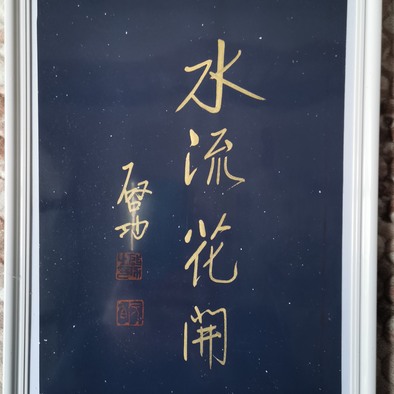 水流花開
启功